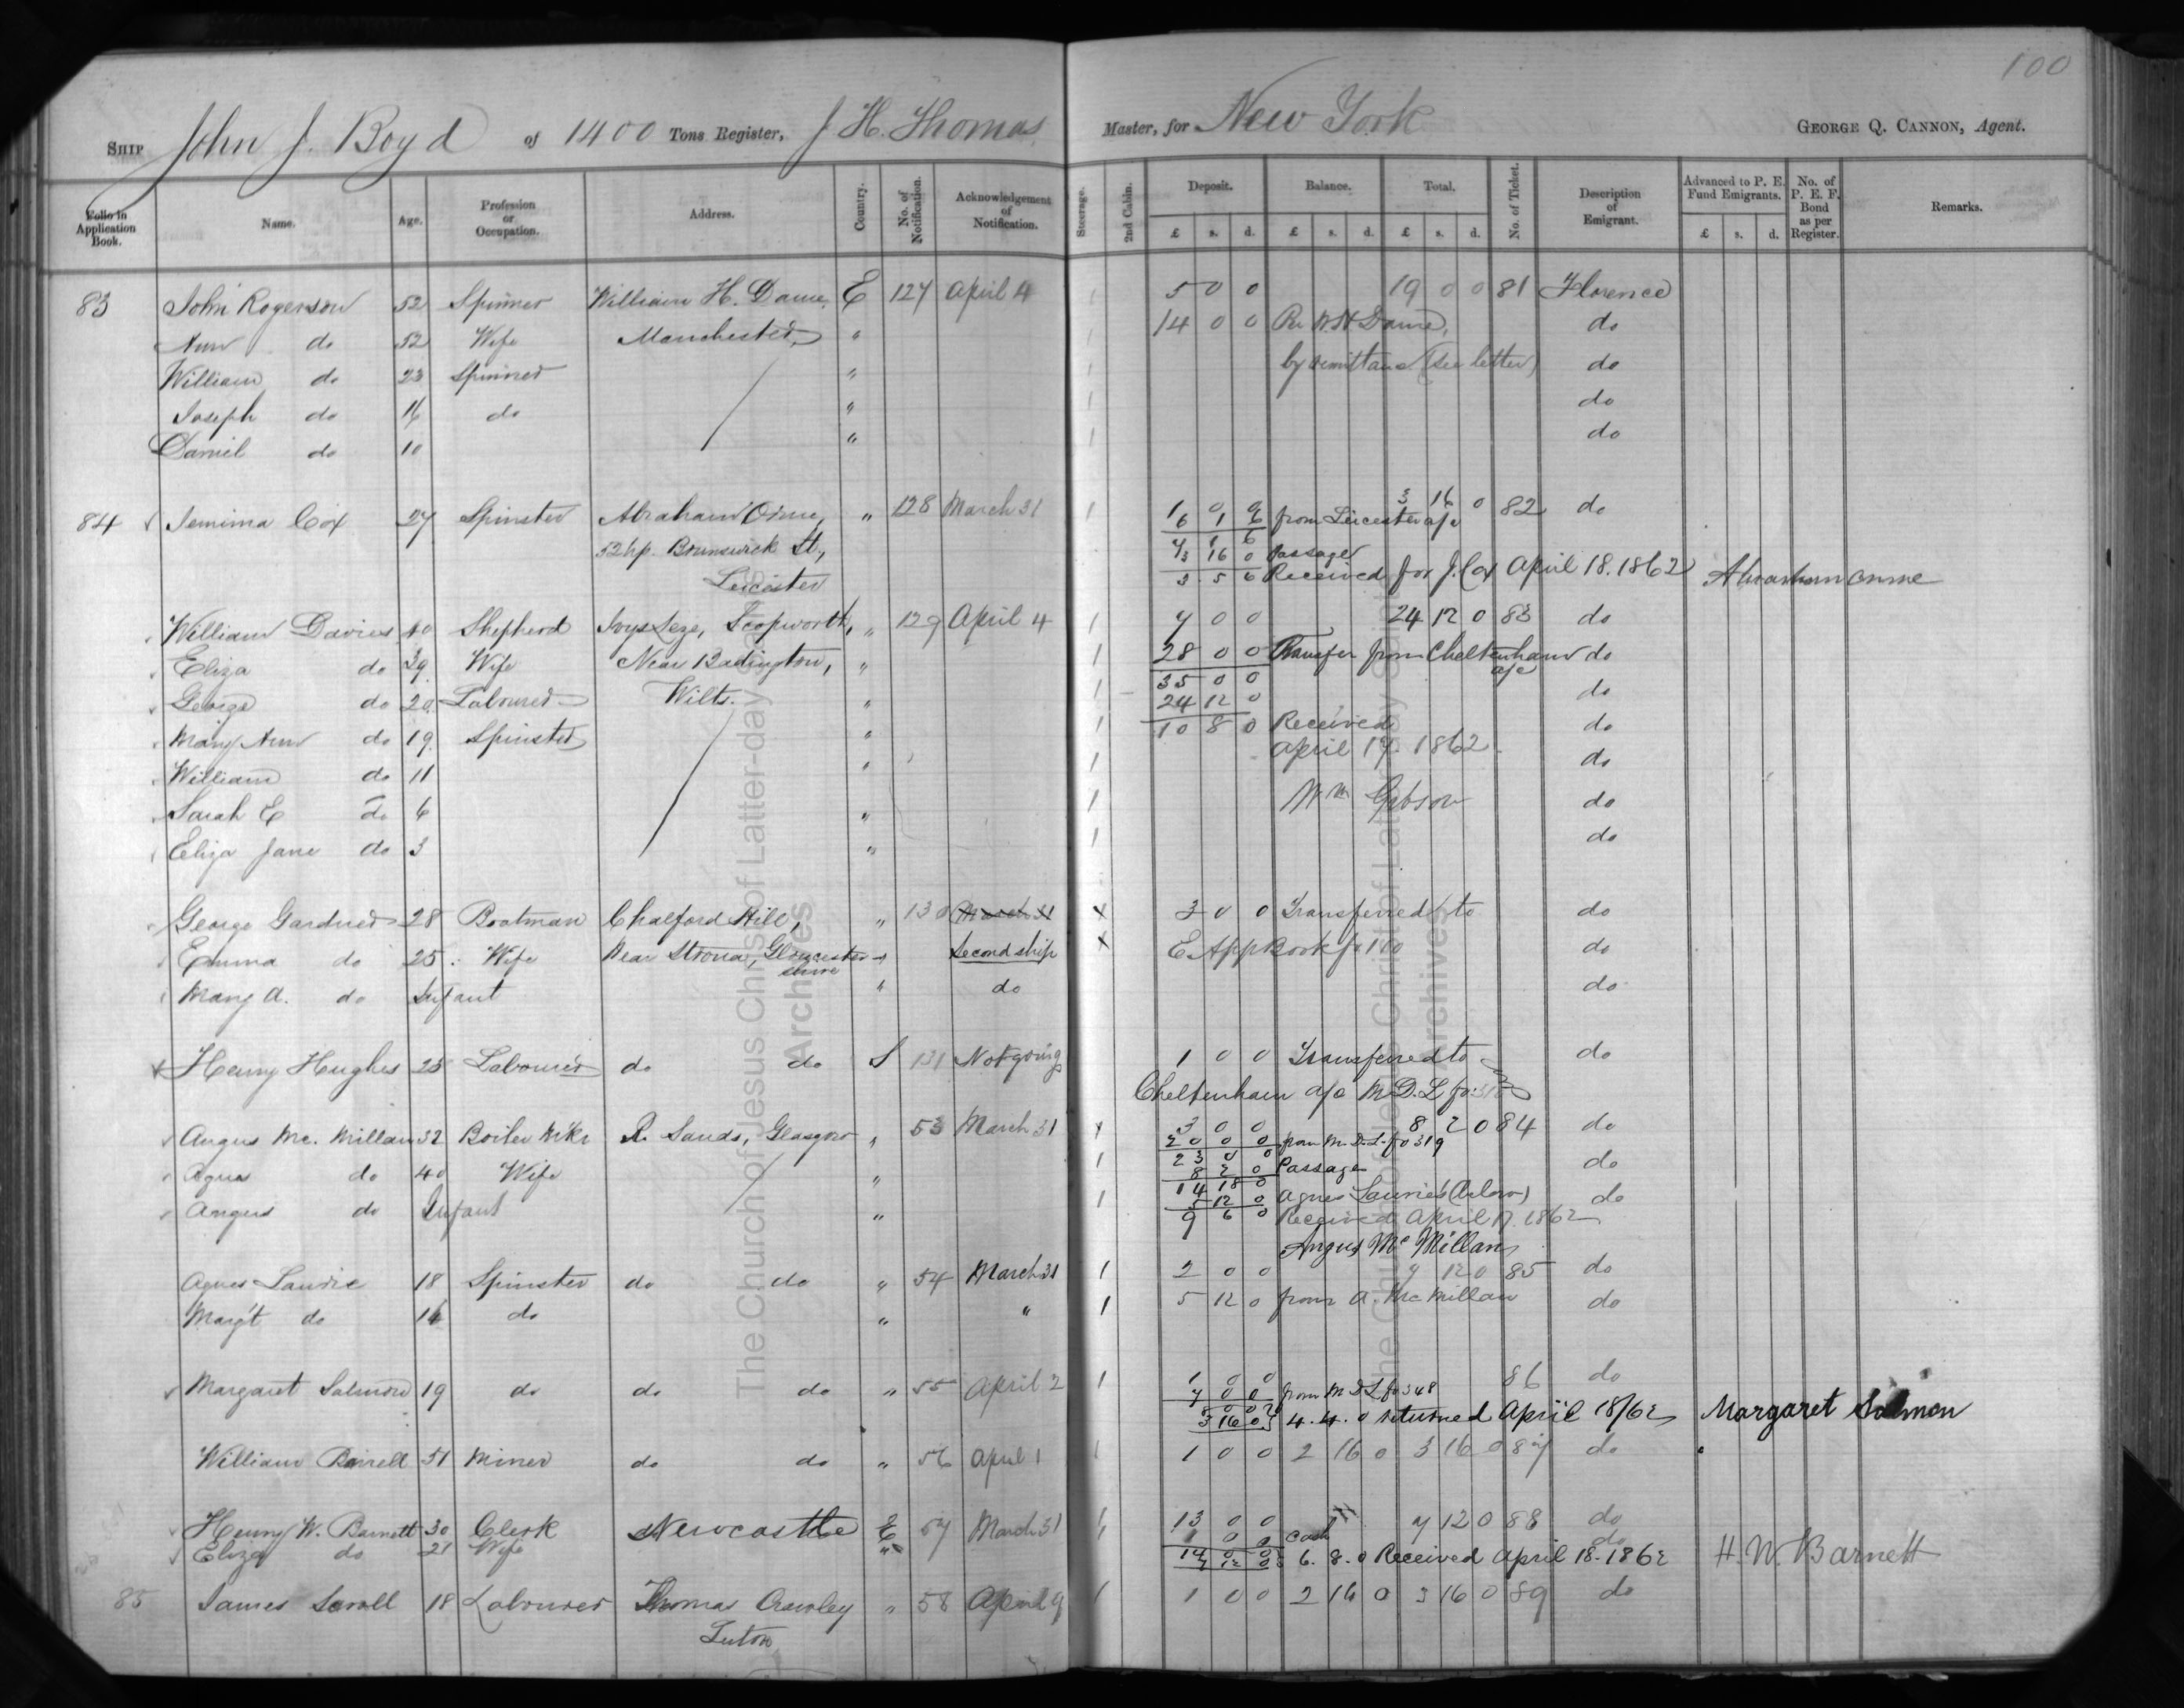 100
Ship John J. Boyd of 1400 Tons Register, J. H. Thomas Master, for New York George Q. Cannon, Agent.
Folio in Application Book. Name. Age. Profession or Occupation. Address. Country. No. of Notification. Acknowledgement of Notification. Steerage. 2nd Cabin. Deposit. Balance. Total. No. of Ticket. Description of Emigrant. Advanced to P. E. Fund Emigrants. No. of P. E. F. Bond as per Register. Remarks.
£ s. d. £ s. d. £ s. d. £ s. d.
83 John Rogerson 52 Spinner William H. Dame E 127 April 4 1 5 0 0 19 0 0 81 Florence
Ann do 52 Wife Manchester " 1 14 0 0 Pr W H Dame, do
William do 23 Spinner " 1 by remittance (see letter) do
Joseph do 16 do " 1 do
Daniel do 10 " 1 do
84 Jemima Cox 27 Spinster Abraham Orme, " 128 March 31 1 1 0 0 3 16 0 82 do
6 1 6 from Leicester a/c
52 hp. Brunswick St, 7 1 6
3 16 0 Passage
Leicester 3 5 6 Received for J. Cox April 18. 1862 Abraham Orme
William Davies 40 Shepherd " 129 April 4 1 7 0 0 24 12 0 83 do
Eliza do 39 Wife Near Badington, " 1 28 0 0 Transfer from Cheltenham a/c do
35 0 0
George do 20 Labourer Wilts. " 1 24 12 0 do
Mary Ann do 19 Spinster " 1 10 8 0 Received do
William do 11 " 1 April 17. 1862 do
Sarah E do 6 " 1 Wm Gibson do
Eliza Jane do 3 " 1 do
George Gardner 28 Boatman Chalford Hill, " 130 March 31 x 3 0 0 Transferred to do
Emma do 25 Wife Near Stroud, Gloucestershire " Second ship x E. App Book fo 110 do
Mary A. do Infant " do do
Henry Hughes 25 Labourer do do S 131 Not going 1 0 0 Transferred to do
Cheltenham a/c M. D. L fo
Angus Mc. Millan 32 Boiler Mkr R. Sands, Glasgow " 53 March 31 1 3 0 0 8 2 0 84 do
20 0 0 from M. D. L. fo 319
23 0 0
Agnes do 40 Wife " 1 8 2 0 Passage do
14 18 0
Angus do Infant " 1 5 12 0 Agnes Laurie (Below) do
9 6 0 Received April 17. 1862
Angus Mc Millan
Agnes Laurie 18 Spinster do do " 54 March 31 1 2 0 0 7 12 0 85 do
Marg't do 16 do " " 1 5 12 0 from A. Mc Millan do
Margaret Salmon 19 do do do " 55 April 2 1 1 0 0 86 do
7 0 0 from M D L fo 348
8 0 0
3 16 0 4. 4. 0 returned April 18/62 Margaret Salmon
William Birrell 51 Miner do do " 56 April 1 1 1 0 0 2 16 0 3 16 0 87 do
Henry W. Barnett 30 Clerk Newcastle E 57 March 31 1 13 0 0 7 12 0 88 do
Eliza do 21 Wife " 1 0 0 Cash do
14 0 0
7 12 0 6. 8. 0 Received April 18. 1862 H. W. Barnett
85 James Savall 18 Labourer Thomas Crawley " 58 April 9 1 1 0 0 2 16 0 3 16 0 89 do
Luton
The Church of Jesus Christ of Latter-day Saints
Archives
The Church of Jesus Christ of Latter-day Saints
Archives